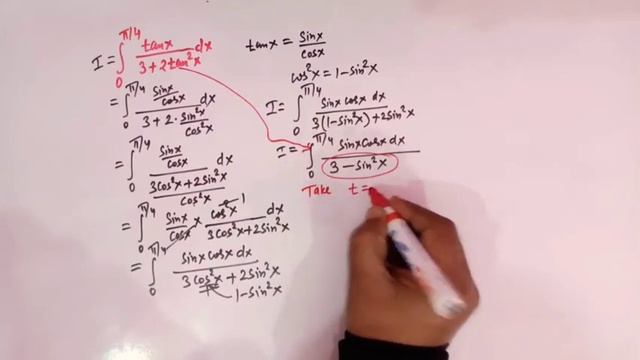 I = ∫₀^π/4 tanx/(3 + 2tan²x) dx
= ∫₀^π/4 (sinx/cosx)/(3 + 2·sin²x/cos²x) dx
= ∫₀^π/4 (sinx/cosx)/((3cos²x + 2sin²x)/cos²x) dx
= ∫₀^π/4 sinx/cosx × cos²x/(3cos²x + 2sin²x) dx 1
= ∫₀^π/4 sinx cosx dx/(3cos²x + 2sin²x)
1 - sin²x
tanx = sinx/cosx
cos²x = 1 - sin²x
I = ∫₀^π/4 sinx cosx dx/(3(1 - sin²x) + 2sin²x)
I = ∫₀^π/4 sinx cosx dx/(3 - sin²x)
Take t =